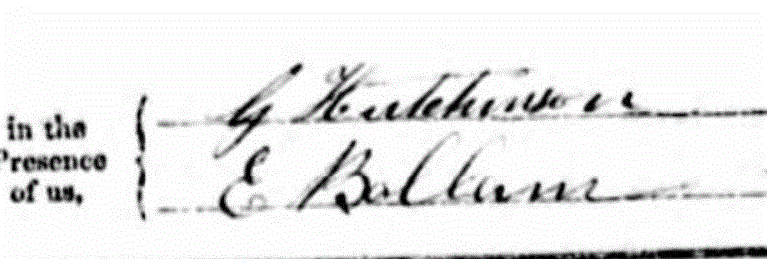 G Hutchinson
in the
Presence
of us,
E Ballam